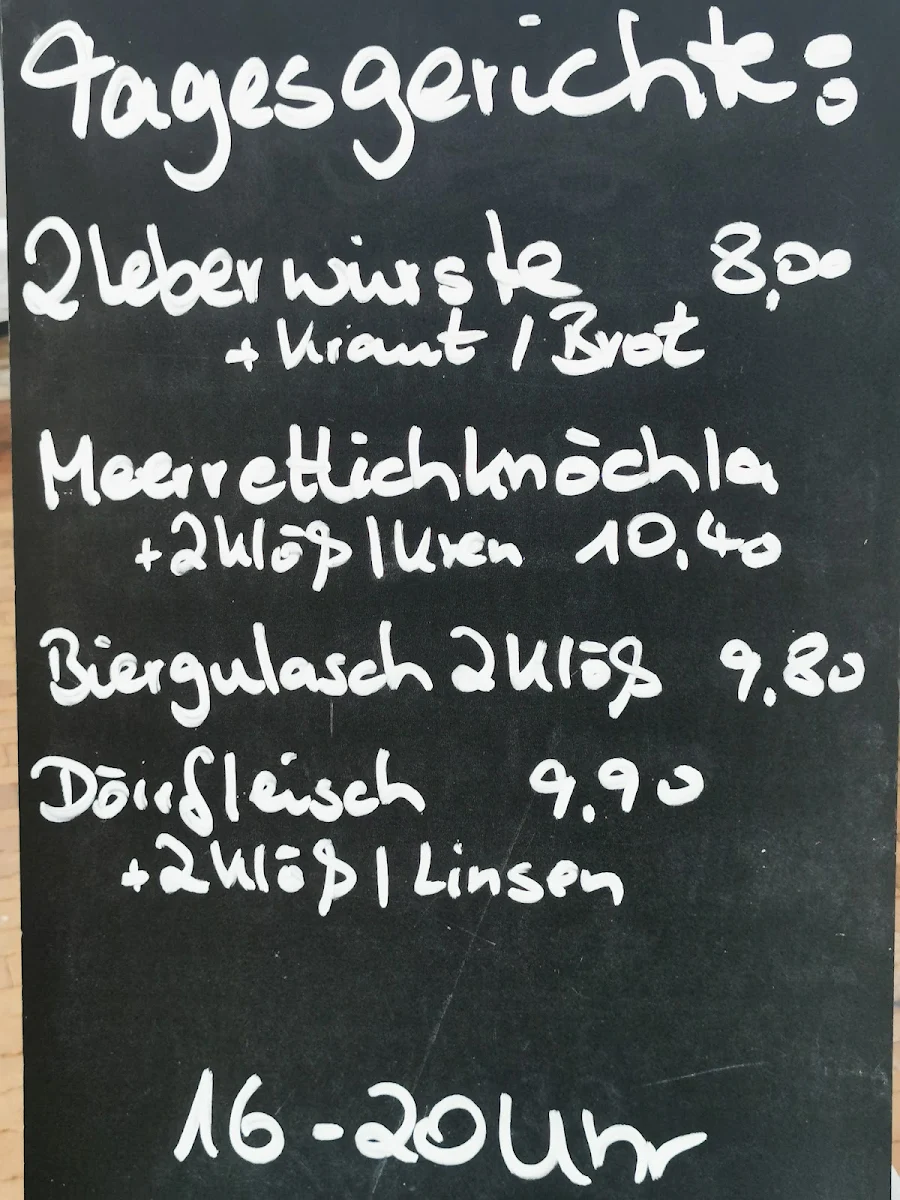 Tagesgerichte:
2 Leberwürste 8,00
+ Kraut / Brot
Meerrettichknöchla
+ 2 Klöß / Kren 10,40
Biergulasch 2 Klöß 9,80
Dörrfleisch 9,90
+ 2 Klöß / Linsen
16 - 20 Uhr